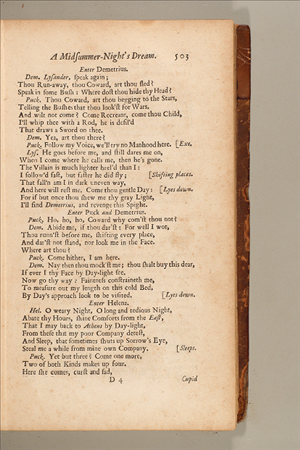 A Midsummer-Night's Dream. 503
Enter Demetrius.
Dem. Lysander, speak again;
Thou Run-away, thou Coward, art thou fled?
Speak in some Bush: Where dost thou hide thy Head?
Puck. Thou Coward, art thou bragging to the Stars,
Telling the Bushes that thou look'st for Wars,
And wilt not come? Come Recreant, come thou Child,
I'll whip thee with a Rod, he is defil'd
That draws a Sword on thee.
Dem. Yea, art thou there?
Puck. Follow my Voice, we'll try no Manhood here. [Exe.
Lys. He goes before me, and still dares me on,
When I come where he calls me, then he's gone.
The Villain is much lighter heel'd than I:
I follow'd fast, but faster he did fly; [Shifting places.
That fall'n am I in dark uneven way,
And here will rest me. Come thou gentle Day: [Lyes down.
For if but once thou shew me thy gray Light,
I'll find Demetrius, and revenge this Spight.
Enter Puck and Demetrius.
Puck. Ho, ho, ho, Coward why com'st thou not?
Dem. Abide me, if thou dar'st: For well I wot,
Thou runn'st before me, shifting every place,
And dar'st not stand, nor look me in the Face.
Where art thou?
Puck. Come hither, I am here.
Dem. Nay then thou mock'st me; thou shalt buy this dear,
If ever I thy Face by Day-light see.
Now go thy way: Faintness constraineth me,
To measure out my length on this cold Bed,
By Day's approach look to be visited. [Lyes down.
Enter Helena.
Hel. O weary Night, O long and tedious Night,
Abate thy Hours, shine Comforts from the East,
That I may back to Athens by Day-light,
From these that my poor Company detest,
And Sleep, that sometimes shuts up Sorrow's Eye,
Steal me a while from mine own Company. [Sleeps.
Puck. Yet but three? Come one more,
Two of both Kinds makes up four.
Here she comes, curst and sad,
D 4 Cupid